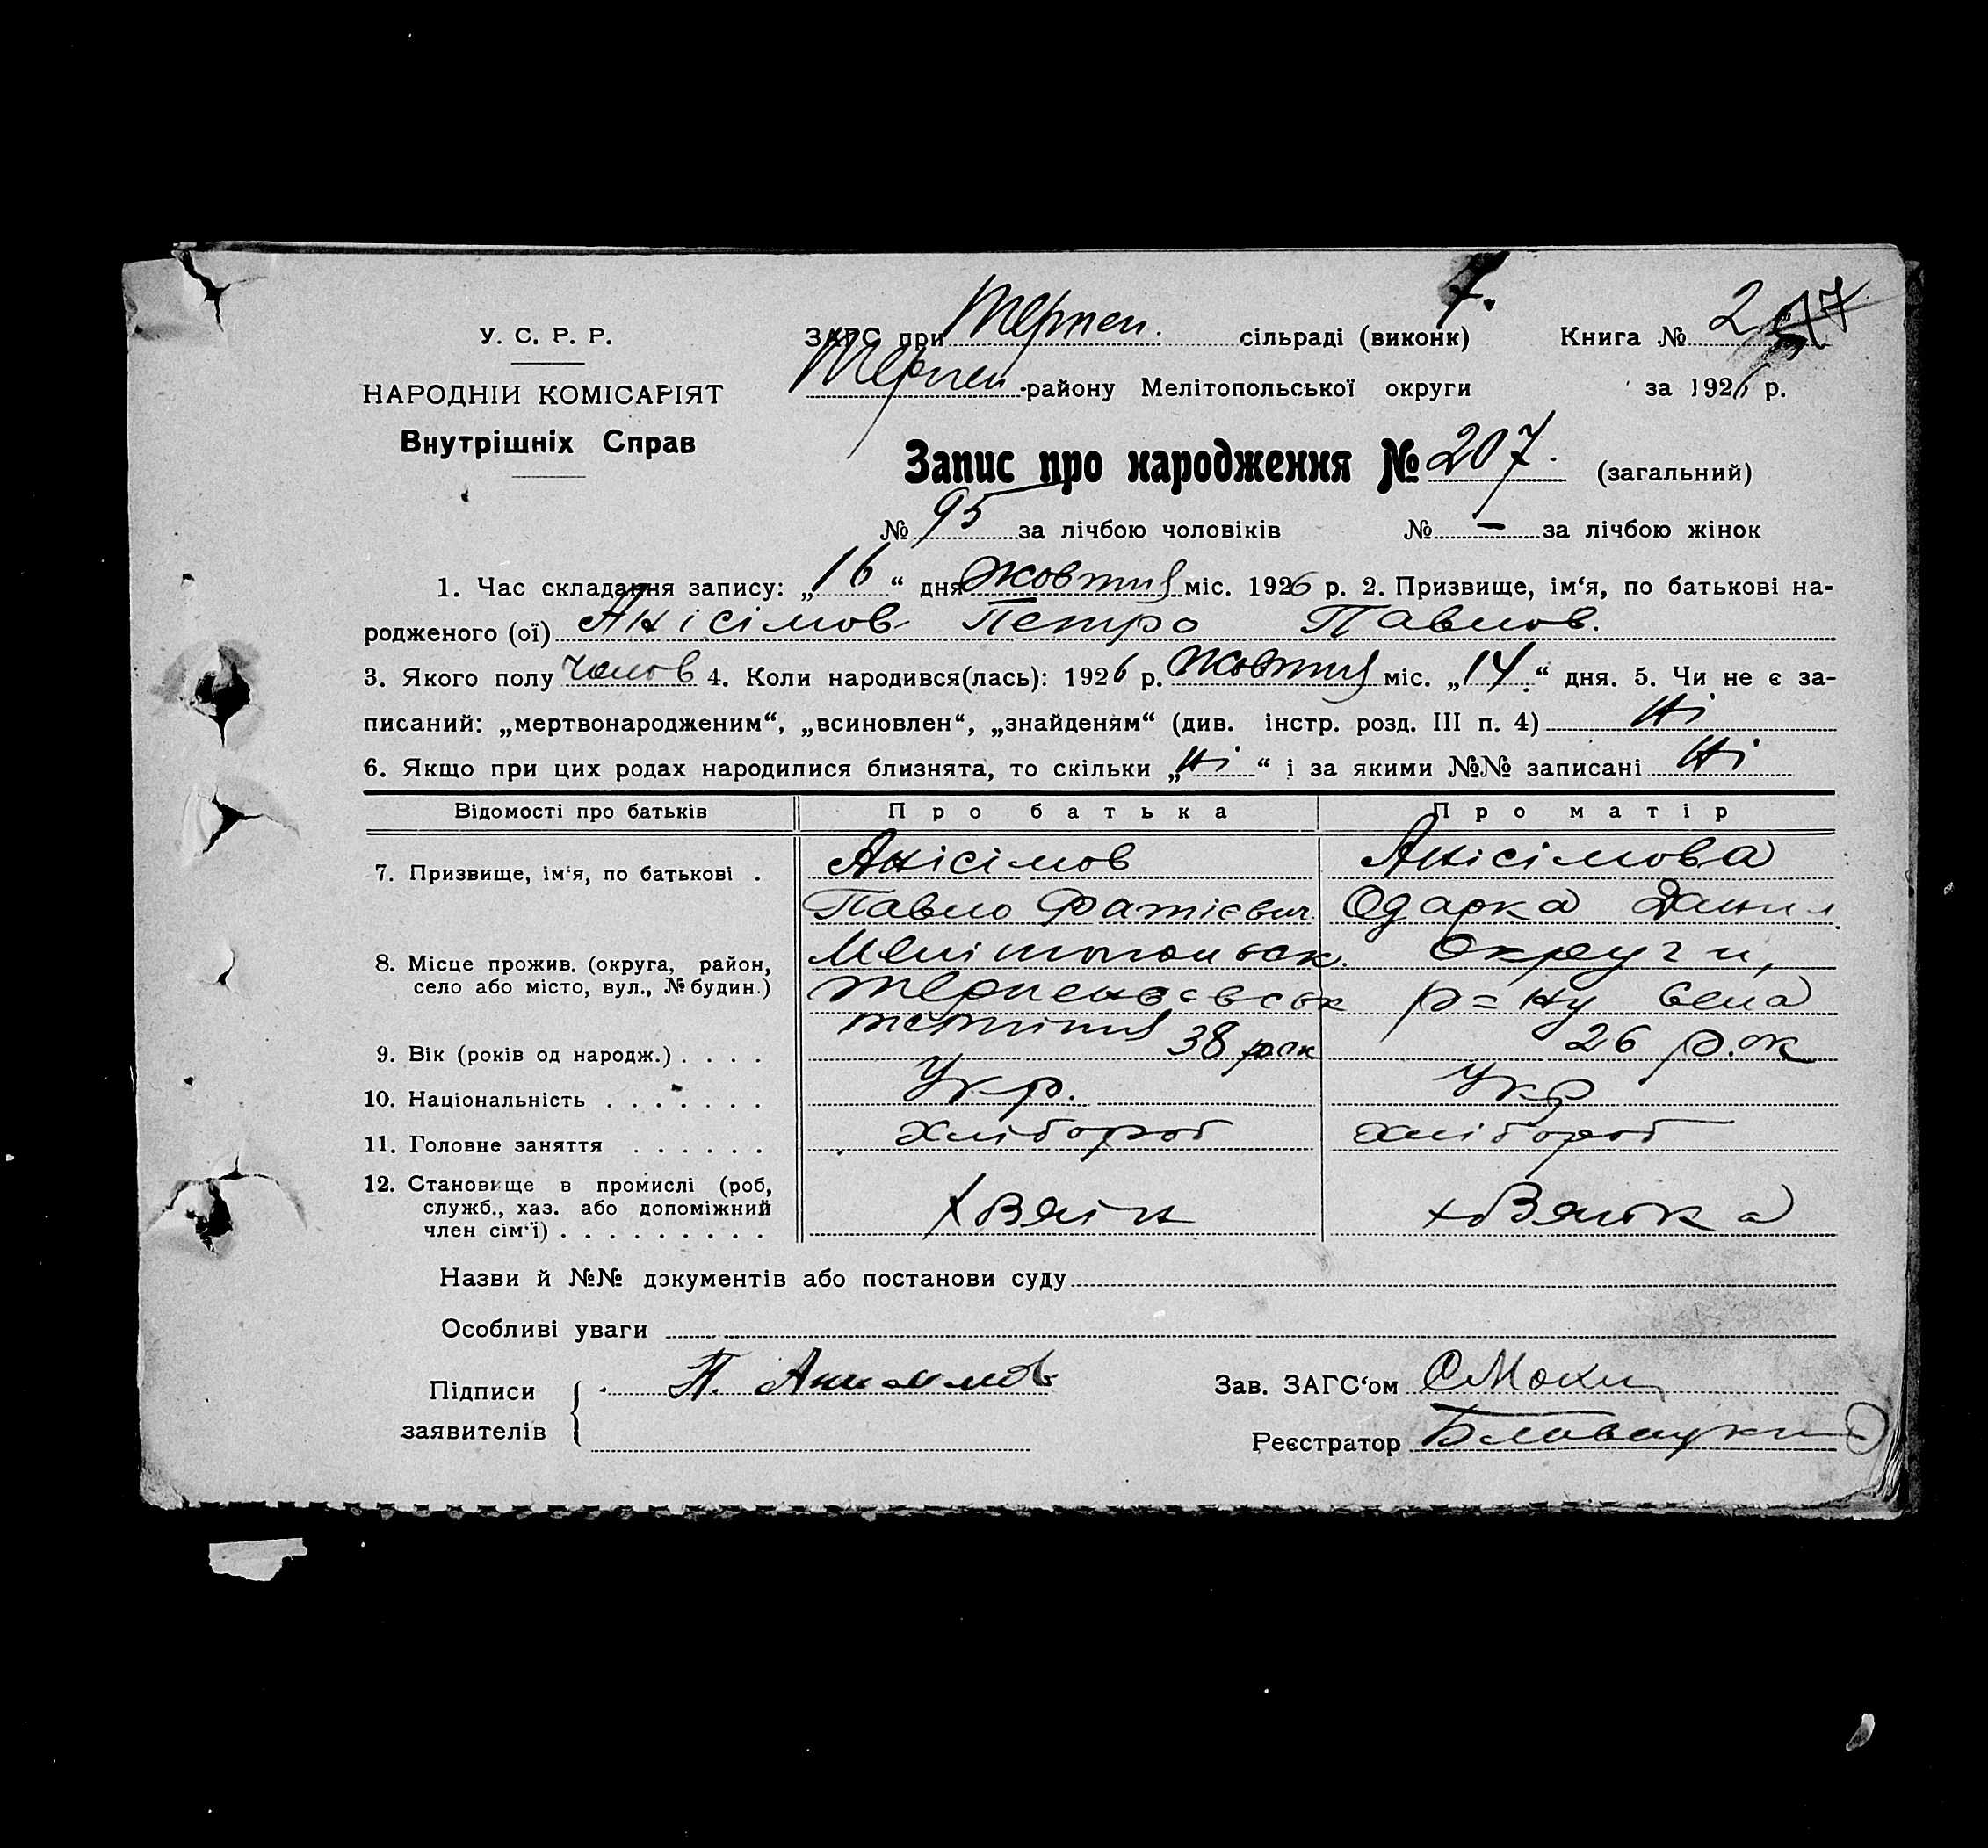 7.
У. С. Р. Р.
ЗАГС при Терпен. сільраді (виконк) Книга № 2
НАРОДНІЙ КОМІСАРІЯТ
Терпен -району Мелітопольської округи за 1926 р.
Внутрішніх Справ
Запис про народження № 207. (загальний)
№ 95 за лічбою чоловіків № — за лічбою жінок
1. Час складання запису: „16“ дня жовтня міс. 1926 р. 2. Призвище, ім‘я, по батькові на-
родженого (ої) Анісімов Петро Павлов.
3. Якого полу чолов 4. Коли народився(лась): 1926 р. жовтня міс. „14“ дня. 5. Чи не є за-
писаний: „мертвонародженим“, „всиновлен“, „знайденям“ (див. інстр. розд. III п. 4) Ні
6. Якщо при цих родах народилися близнята, то скільки „Ні“ і за якими №№ записані Ні
Відомості про батьків Про батька Про матір
7. Призвище, ім‘я, по батькові . Анісімов Анісімова
Павло Фатієвич Одарка Данил
8. Місце прожив. (округа, район, село або місто, вул., № будин.) Мелітопольськ. округи,
р=ну села
9. Вік (років од народж.) . . . . 38 рок 26 рок
10. Національність . . . . . . . Укр. Укр
11. Головне заняття . . . . . . хлібороб хлібороб
12. Становище в промислі (роб, служб., хаз. або допоміжний член сім‘ї) . . . . . . . . .
Назви й №№ документів або постанови суду
Особливі уваги
Підписи заявителів { П. Анисимов
Зав. ЗАГС‘ом
Реєстратор